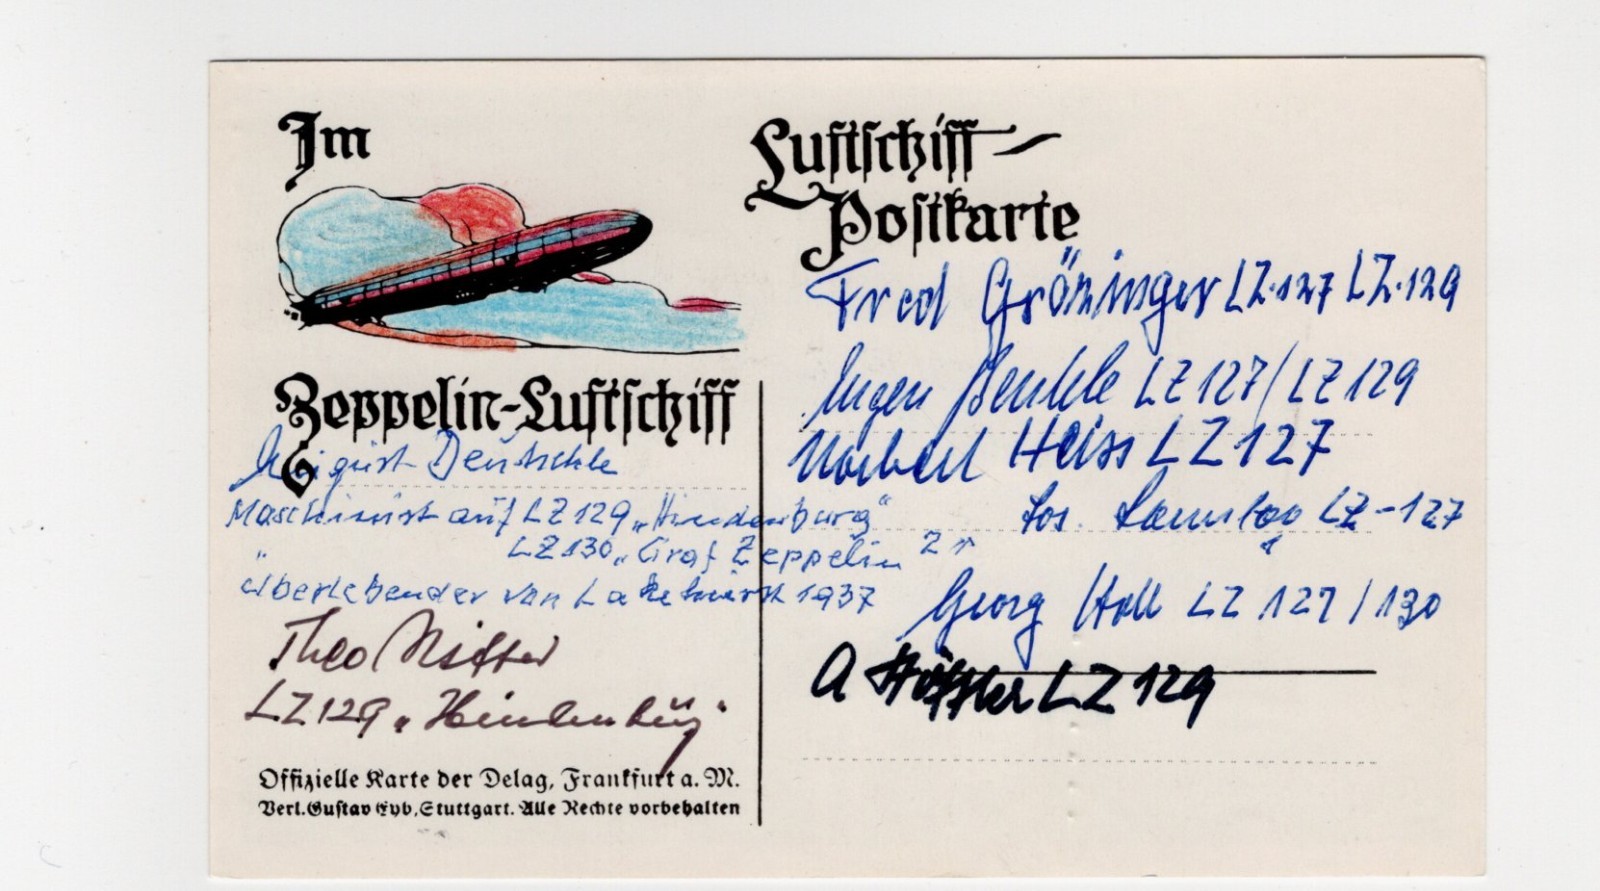 Im
Zeppelin-Luftschiff
August Deutschle
Maschinist auf LZ 129 „Hindenburg"
LZ 130 „Graf Zeppelin" 2
Überlebender von Lakehurst 1937
Theo Ritter
LZ 129 „Hindenburg"
Offizielle Karte der Delag, Frankfurt a. M.
Verl. Gustav Eyb, Stuttgart. Alle Rechte vorbehalten
Luftschiff-
Postkarte
Fred Gröninger LZ.127 LZ.129
Eugen Bentele LZ 127/LZ 129
Norbert Heiss LZ 127
Jos. LZ-127
Georg Holl LZ 127/130
A LZ 129